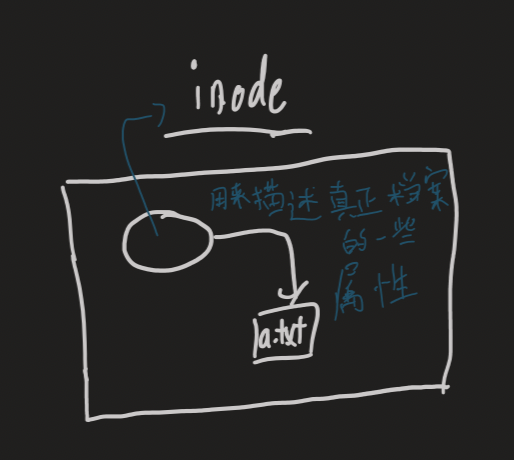 inode
用来描述真正档案
的一些
属性
a.txt